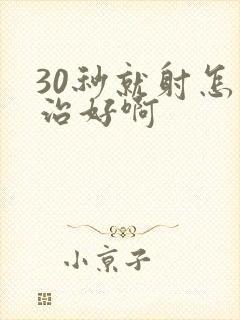 30秒就射怎
治好啊
小京子